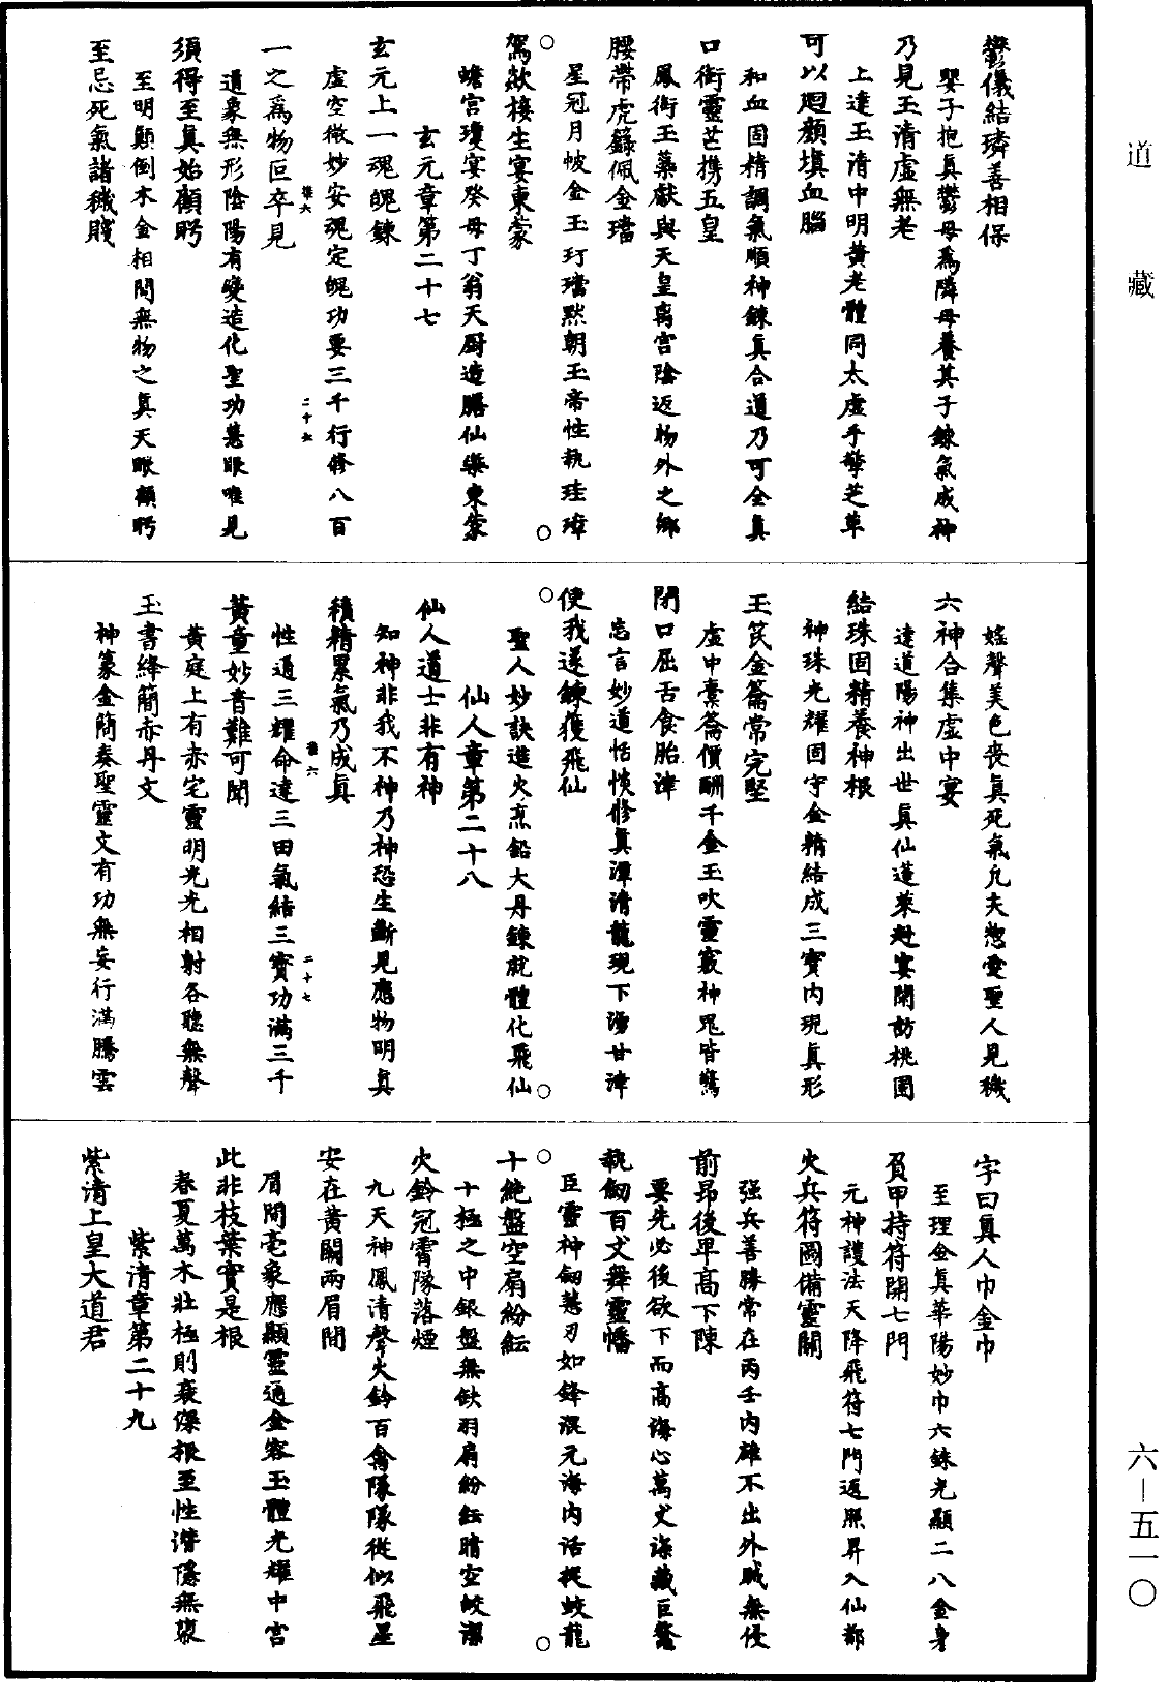 鬱儀結璘善相保
嬰子抱真鬱母為隣母養其子鍊氣成神
乃見玉清虛無老
上達玉清中明黃老體同太虛手擎芝草
可以迴顏填血腦
和血固精調氣順神鍊真合道乃可全真
口銜靈芒携五皇
鳳銜玉蘂獻與天皇离宮陰返物外之鄉
腰帶虎籙佩金璫
星冠月帔金玉玎璫默朝玉帝性執珪璋
駕欻接生宴東蒙
蟾宮瓊宴癸母丁翁天厨造膳仙樂東蒙
玄元章第二十七
玄元上一魂魄鍊
虛空微妙安魂定魄功要三千行修八百
一之為物叵卒見
道象無形陰陽有變造化聖功慧眼唯見
須得至真始顧眄
至明顛倒木金相間無物之真天眼顧眄
至忌死氣諸穢賤
二十六
婬聲美色喪真死氣凡夫惣愛聖人見穢
六神合集虛中宴
達道陽神出世真仙蓬萊赴宴閑訪桃園
結珠固精養神根
神珠光耀固守金精結成三寶內現真形
玉笢金籥常完堅
虛中橐籥價酬千金玉吹靈竅神鬼皆驚
閉口屈舌食胎津
忘言妙道恬惔修真潭清龍現下湧甘津
使我遂鍊獲飛仙
聖人妙訣進火烹鉛大丹鍊就體化飛仙
仙人章第二十八
仙人道士非有神
知神非我不神乃神恐生斷見應物明真
積精累氣乃成真
性通三耀命達三田氣結三寶功滿三千
黃童妙音難可聞
二十七
黃庭上有赤宅靈明光光相射各聽無聲
玉書絳簡赤丹文
神篆金簡奏聖靈文有功無妄行滿騰雲
字曰真人巾金巾
至理金真華陽妙巾六銖光顯二八金身
負甲持符開七門
元神護法天降飛符七門返照昇入仙都
火兵符圖備靈關
强兵善勝常在丙壬內雄不出外賊無侵
前昂後卑高下陳
要先必後欲下而高海心萬丈深藏巨鰲
執劒百丈舞靈幡
巨靈神劒慧刃如鋒混元海內活捉蛟龍
十絶盤空扇紛紜
十極之中銀盤無缺羽扇紛紜晴空皎潔
火鈴冠霄隊落煙
九天神鳳清聲火鈴百禽隊隊從似飛星
安在黃闕兩眉間
眉間毫象應顯靈通金容玉體光耀中宮
此非枝葉實是根
春夏萬木壯極則衰深根至性潛隱無衰
紫清章第二十九
紫清上皇大道君
道藏
六—五一〇